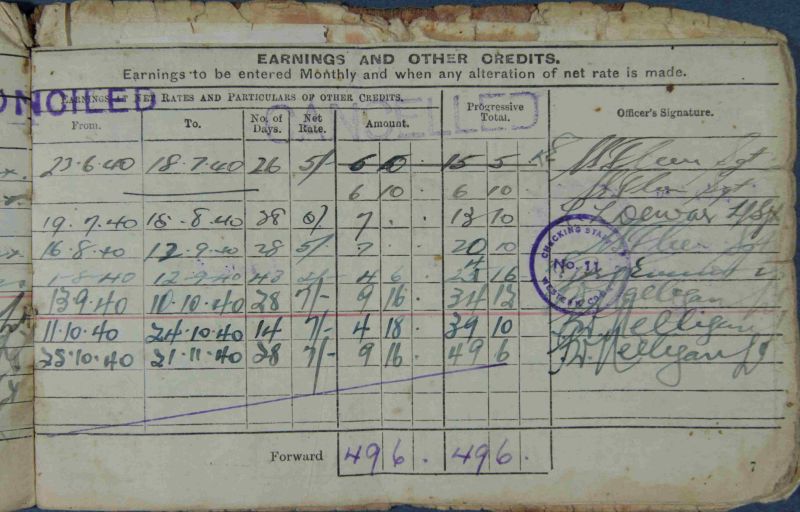 EARNINGS AND OTHER CREDITS.
Earnings to be entered Monthly and when any alteration of net rate is made.
NCILED
CANCELLED
EARNINGS AT NET RATES AND PARTICULARS OF OTHER CREDITS. Progressive Total. Officer's Signature.
From. To. No. of Days. Net Rate. Amount.
23.6.40 18.7.40 26 5/- 6 10 15 5 Sgt
6 10 6 10 Sgt
19.7.40 15.8.40 28 5/- 7 . . 13 10
16.8.40 12.9.40 28 5/- 7 20 10 Sgt
1-8-40 12-9-40 43 2/- 4 6 16
13.9.40 10.10.40 28 7/- 9 16 34 12
11.10.40 24.10.40 14 7/- 4 18 39 10
25.10.40 21.11.40 28 7/- 9 16 49 6
CHECKING No. 11 WESTERN
Forward 49 6 . 49 6 .
7